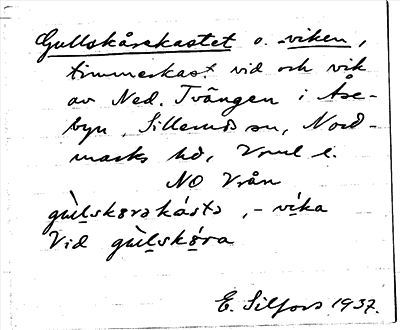 Gullskårekastet o. -viken,
timmerkast vid och vik
av Ned. Tvängen i Åse-
byn, Sillerud sn, Nord-
marks hd, Vrml l.
NO Vrån
gùlskərəkásta, -vika
Vid gùlskəra
E. Silfors 1937.